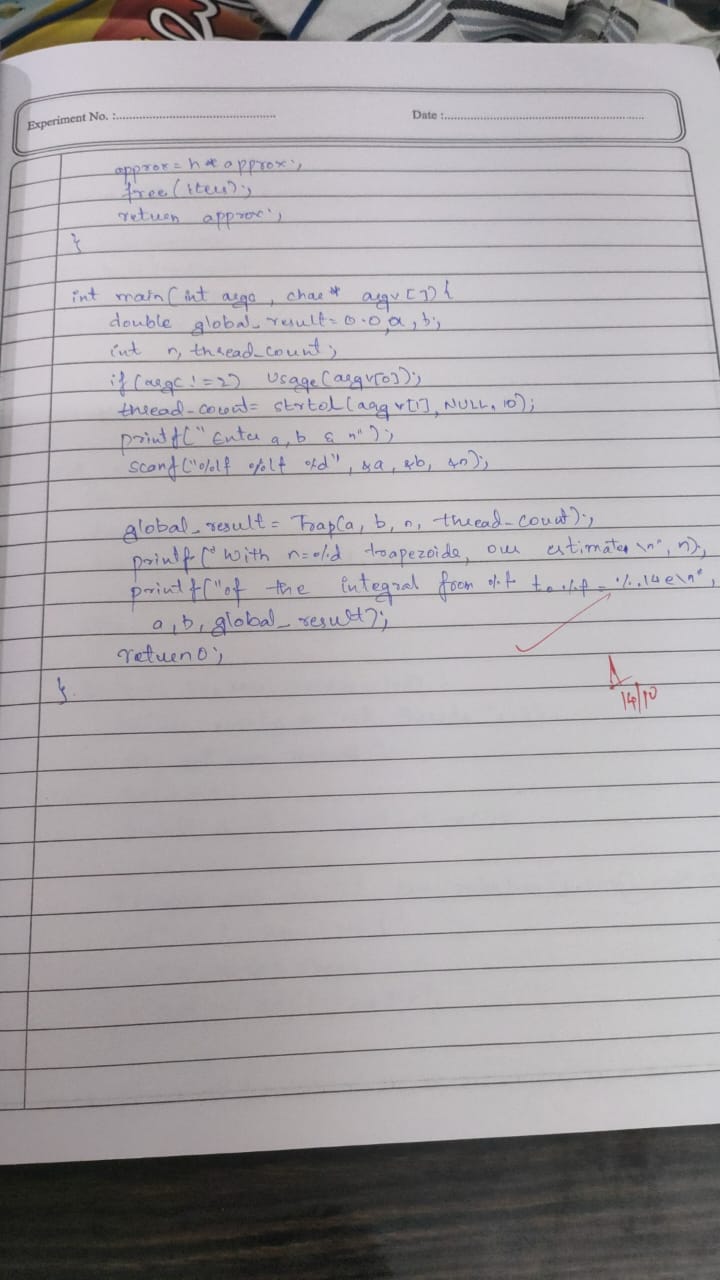 Experiment No. :
Date :
approx = h * approx;
free(iteu);
return approx;
}
int main(int argc, char* argv[]){
double global_result = 0.0, a, b;
int n, thread_count;
if(argc != 2) Usage(argv[0]);
thread_count = strtol(argv[1], NULL, 10);
printf("Enter a, b & n");
scanf("%lf %lf %d", &a, &b, &n);
global_result = Trap(a, b, n, thread_count);
printf("With n=%d trapezoids, our estimates \n", n);
printf("of the integral from %f to %f = %.14e\n",
a, b, global_result);
return 0;
}
14/10